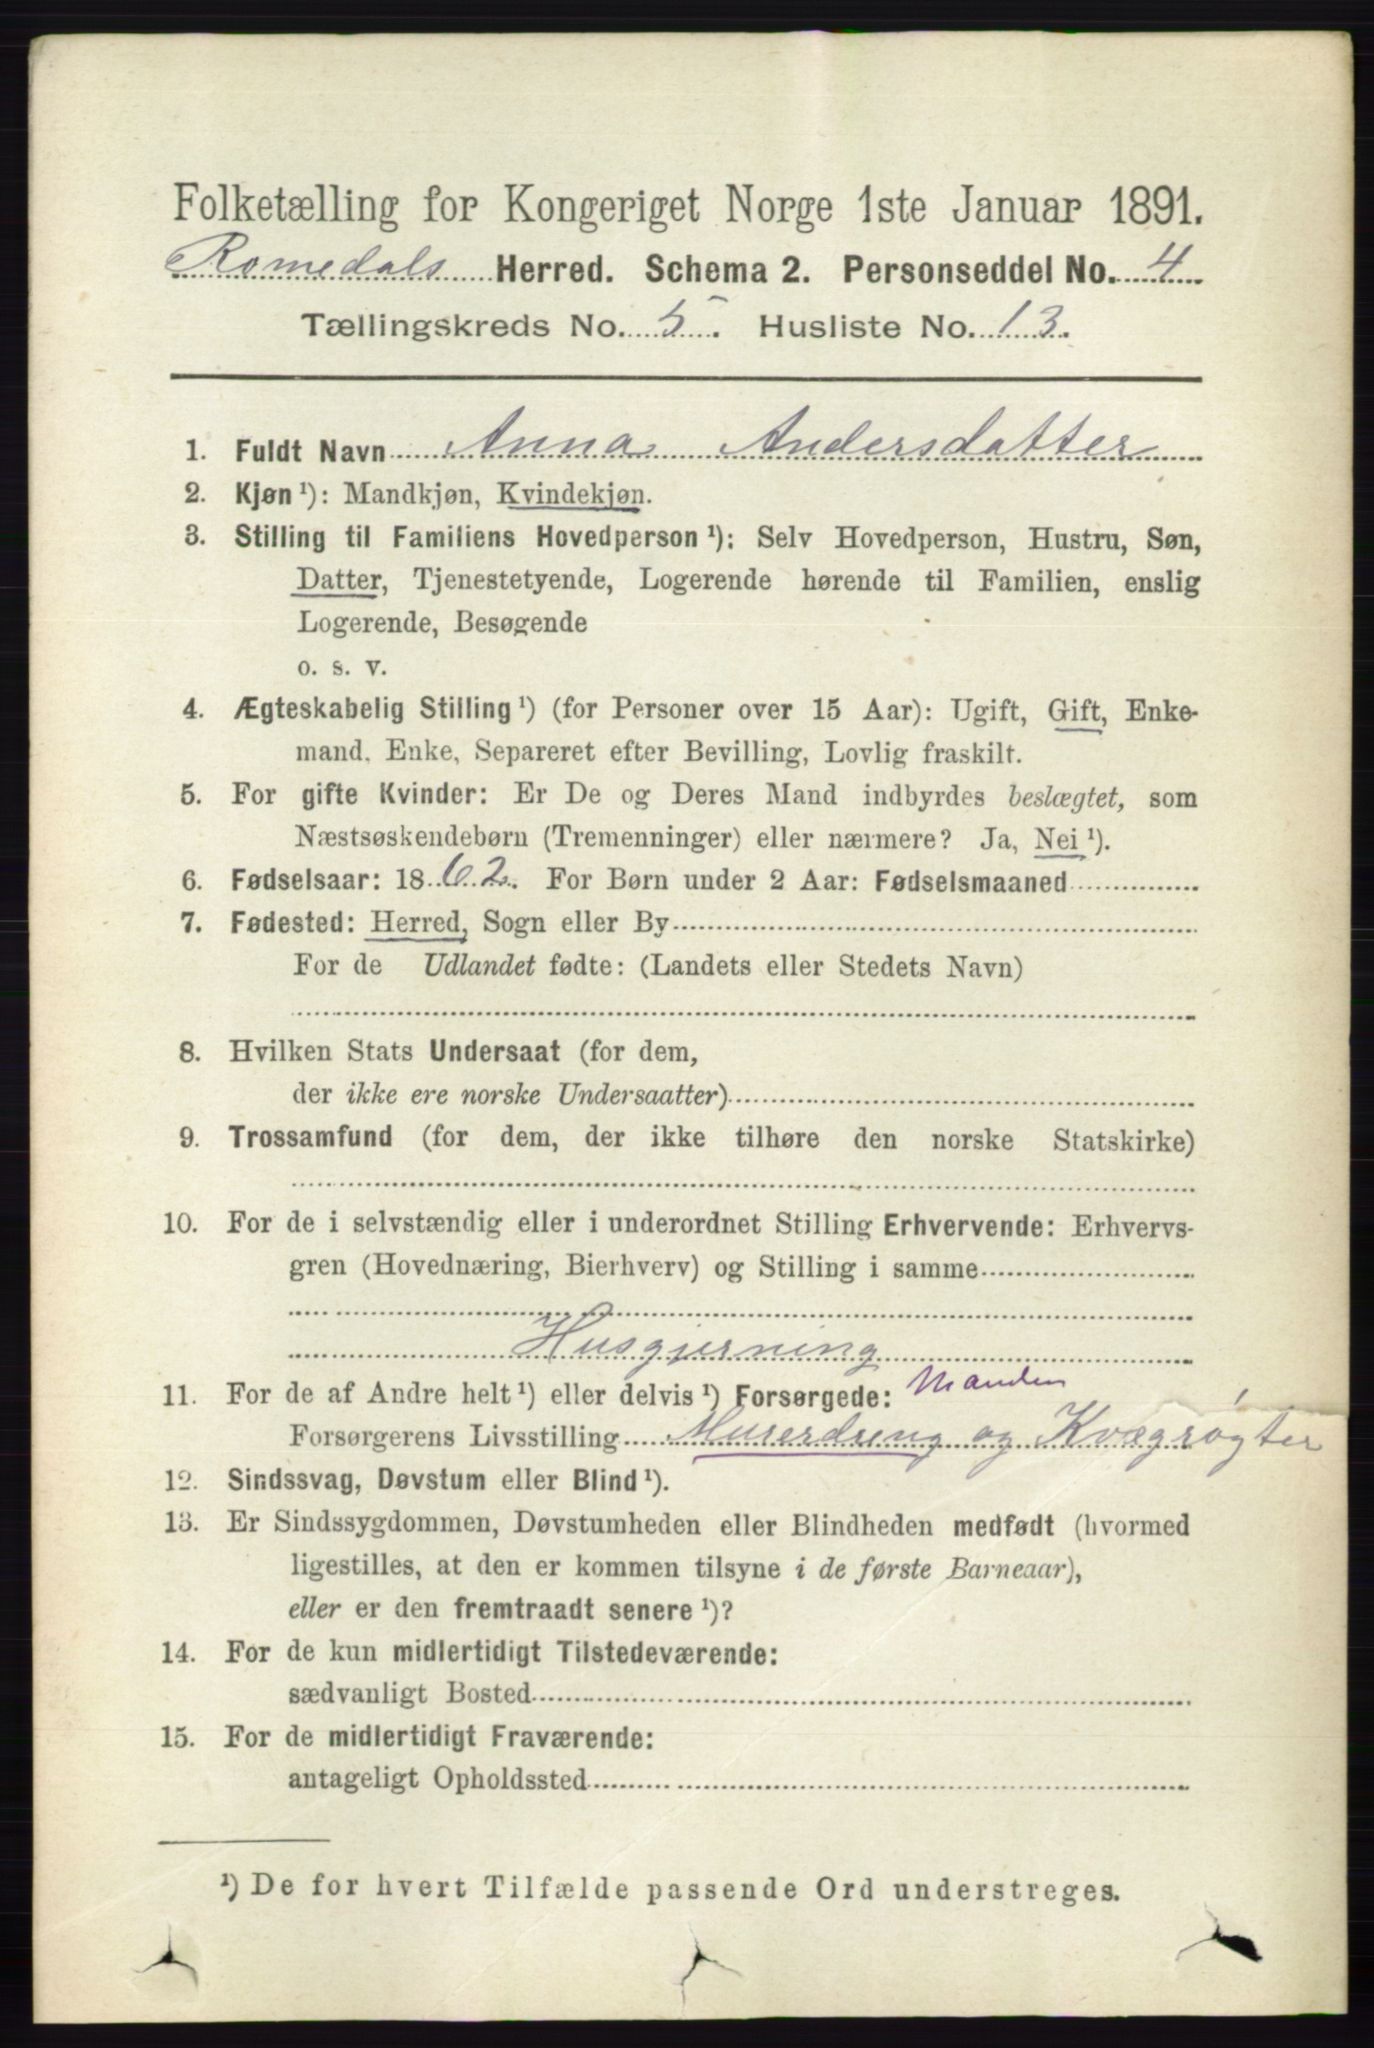 Folketælling for Kongeriget Norge 1ste Januar 1891.
Romedals Herred. Schema 2. Personseddel No. 4
Tællingskreds No. 5. Husliste No. 13.
1. Fuldt Navn Anna Andersdatter
2. Kjøn ¹): Mandkjøn, Kvindekjøn.
3. Stilling til Familiens Hovedperson ¹): Selv Hovedperson, Hustru, Søn,
Datter, Tjenestetyende, Logerende hørende til Familien, enslig
Logerende, Besøgende
o. s. v.
4. Ægteskabelig Stilling ¹) (for Personer over 15 Aar): Ugift, Gift, Enke-
mand, Enke, Separeret efter Bevilling, Lovlig fraskilt.
5. For gifte Kvinder: Er De og Deres Mand indbyrdes beslægtet, som
Næstsøskendebørn (Tremenninger) eller nærmere? Ja, Nei ¹).
6. Fødselsaar: 1862. For Børn under 2 Aar: Fødselsmaaned
7. Fødested: Herred, Sogn eller By
For de Udlandet fødte: (Landets eller Stedets Navn)
8. Hvilken Stats Undersaat (for dem,
der ikke ere norske Undersaatter)
9. Trossamfund (for dem, der ikke tilhøre den norske Statskirke)
10. For de i selvstændig eller i underordnet Stilling Erhvervende: Erhvervs-
gren (Hovednæring, Bierhverv) og Stilling i samme
Husgjerning
11. For de af Andre helt ¹) eller delvis ¹) Forsørgede: Manden
Forsørgerens Livsstilling Murerdreng og Kvægrøgter
12. Sindssvag, Døvstum eller Blind ¹).
13. Er Sindssygdommen, Døvstumheden eller Blindheden medfødt (hvormed
ligestilles, at den er kommen tilsyne i de første Barneaar),
eller er den fremtraadt senere ¹)?
14. For de kun midlertidigt Tilstedeværende:
sædvanligt Bosted
15. For de midlertidigt Fraværende:
antageligt Opholdssted
¹) De for hvert Tilfælde passende Ord understreges.